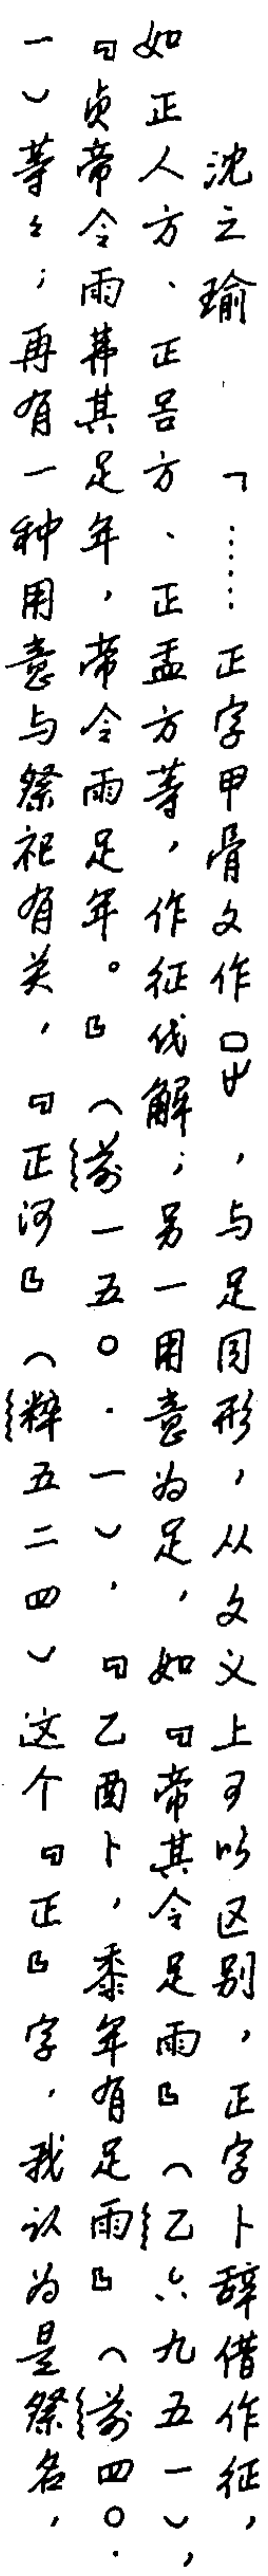 沈之瑜 「……正字甲骨文作𤴓，与足同形，从文义上可以区别，正字卜辞借作征，
如正人方、正呂方、正盂方等，作征伐解；另一用意为足，如『帝其令足雨』（乙六九五一），
『贞帝令雨弗其足年，帝令雨足年。』（前一五〇·一），『乙酉卜，黍年有足雨』（前四〇·
一）等々；再有一种用意与祭祀有关，『正河』（粹五二四）这个『正』字，我认为是祭名，